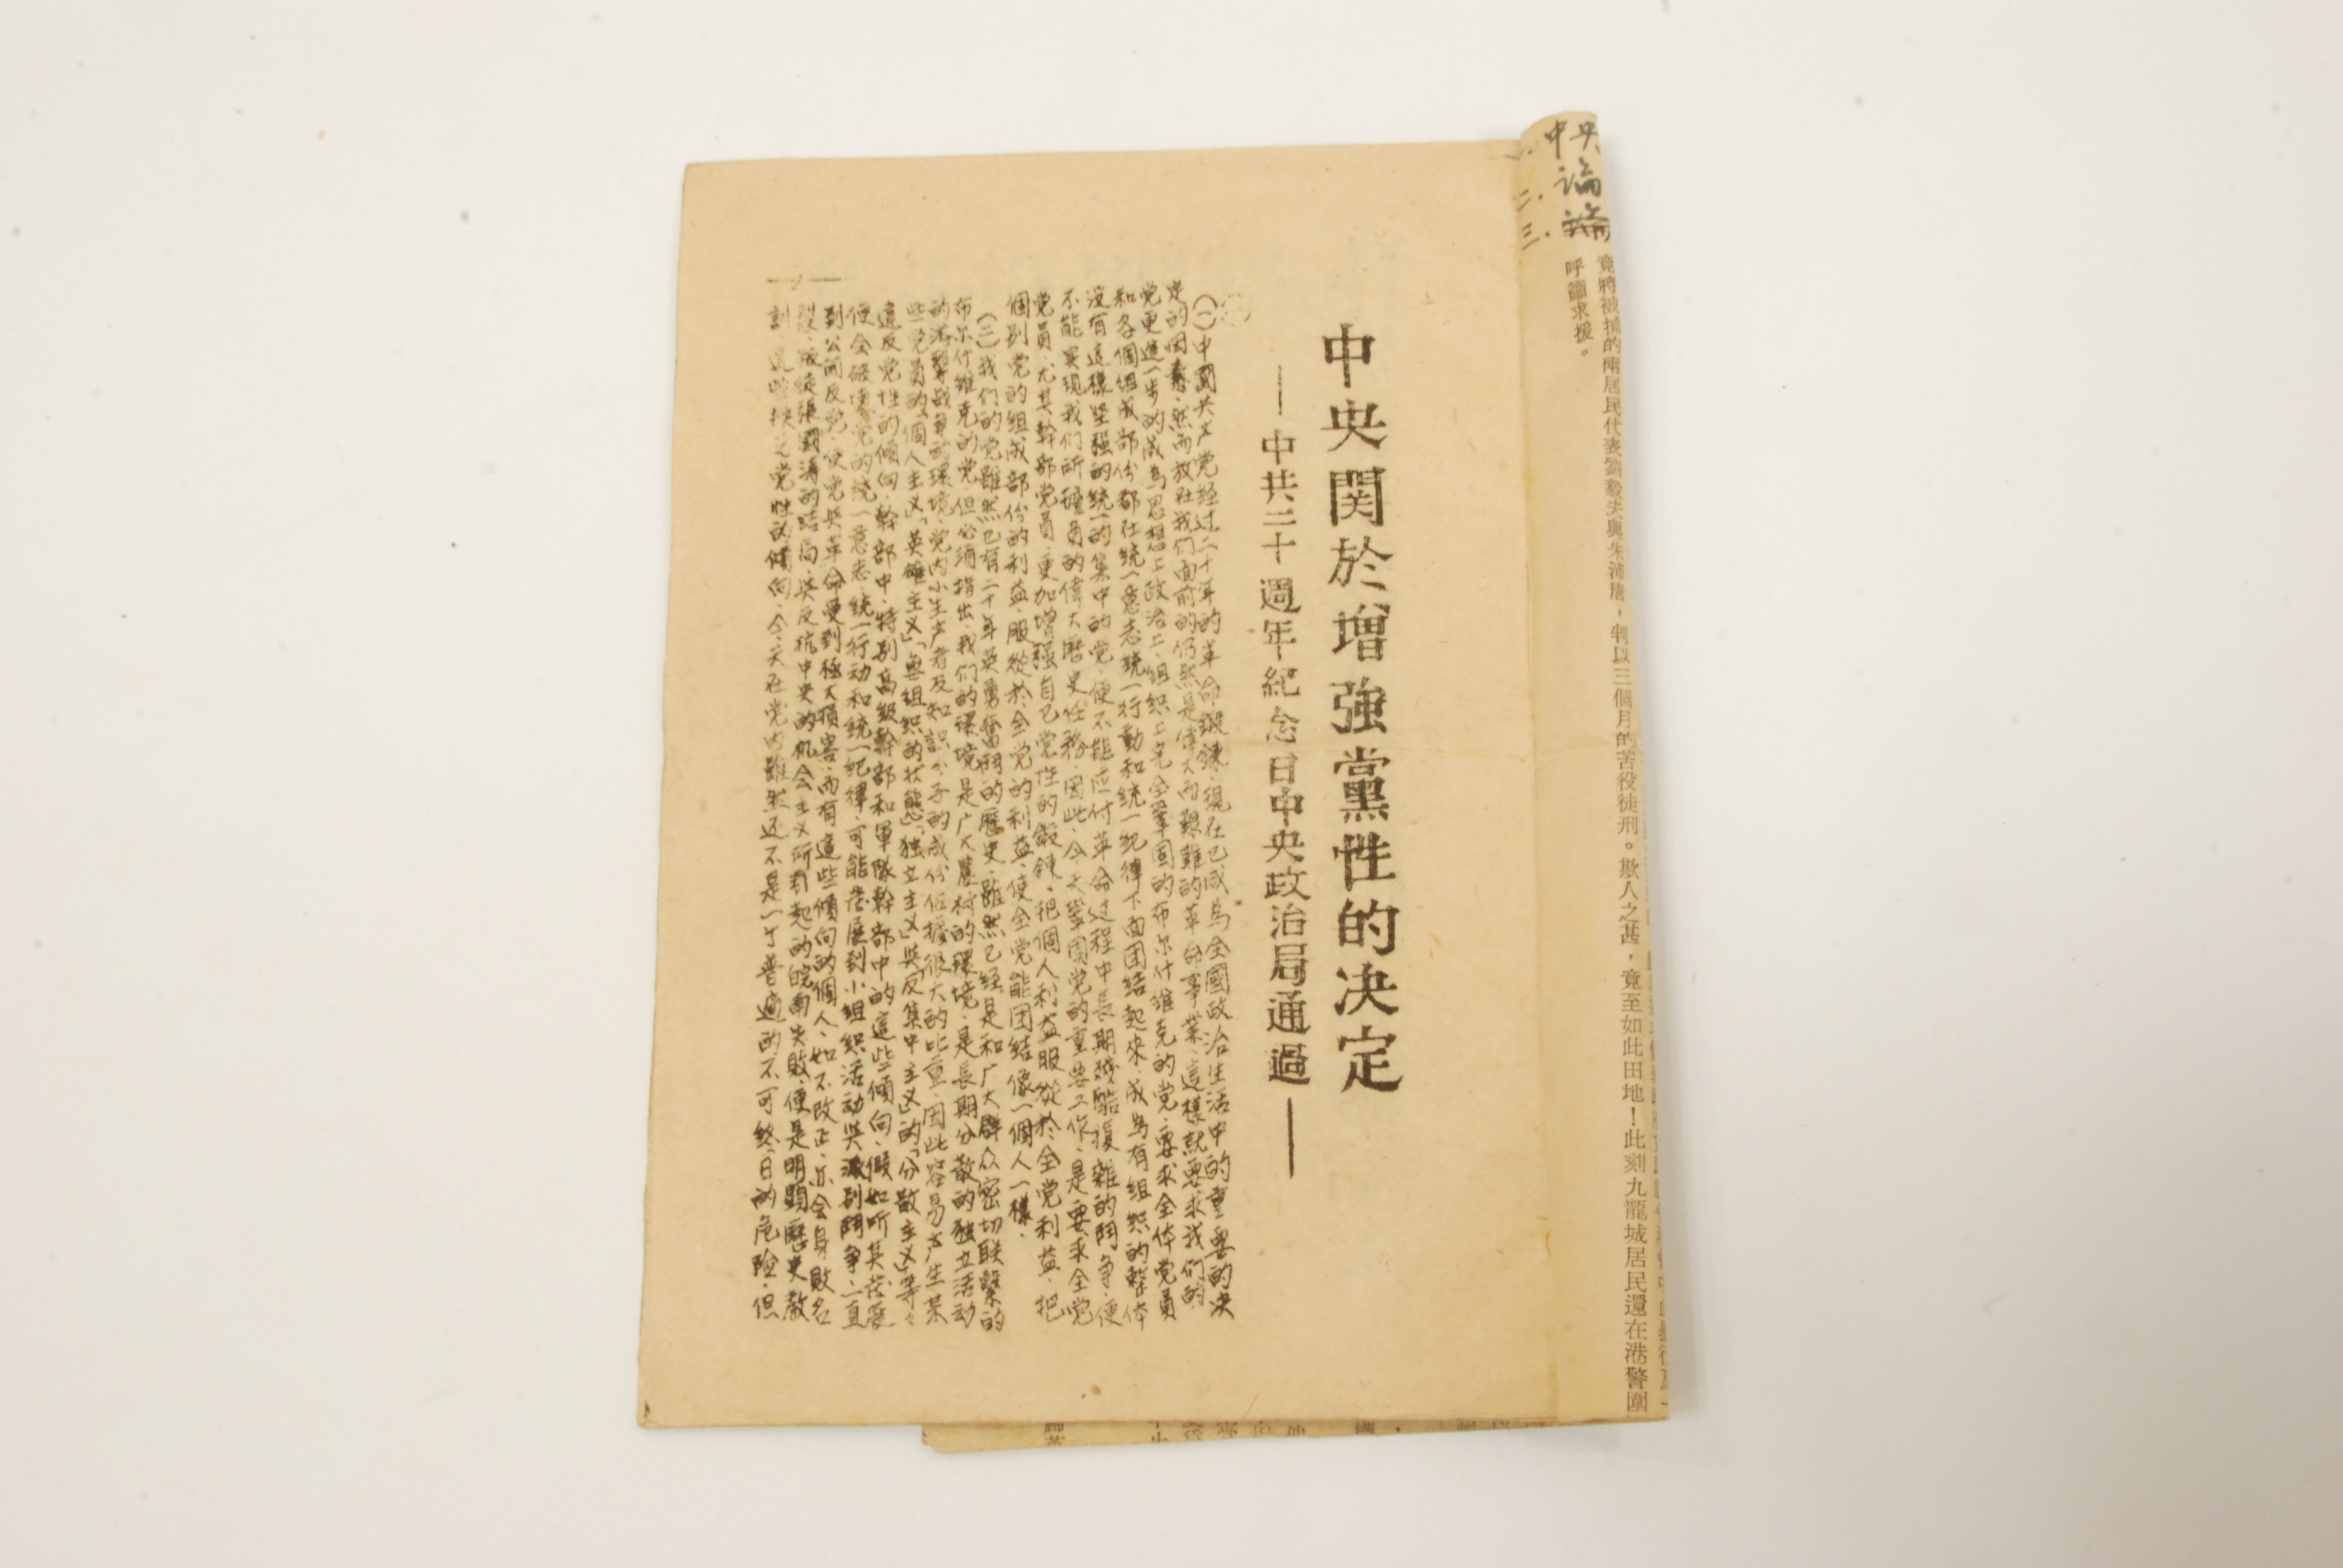 中央
二. 論
三. 論
竟將被捕的兩居民代表劉毅夫與朱沛唐，判以三個月的苦役徒刑。欺人之甚，竟至如此田地！此刻九龍城居民還在港警圍
呼籲求援。
中央関於增強黨性的决定
——中共二十週年紀念日中央政治局通過——
(一)中國共产党经过二十年的革命鍛鍊、现在已成為全國政治生活中的重要的决
定的因素、然而放在我们面前的仍然是偉大而艱難的革命事業、這樣就要求我们的
党更進一步的成為思想上政治上、组织上完全鞏固的布尔什维克的党、要求全体党員
和各個组成部份都在统一意志统一行動和统一纪律下面团结起來、成為有组织的整体
没有這樣坚强的统一的集中的党、便不能应付革命过程中長期残酷復雜的鬥争、便
不能实现我们所担負的偉大歷史任務、因此、今天鞏固党的重要工作、是要求全党
党員、尤其幹部党員、更加增强自己党性的鍛鍊、把個人利益服從於全党利益、把
個别党的组成部份的利益、服從於全党的利益、使全党能团结像一個人一樣.
(二)我们的党雖然已有二十年英勇奮鬥的歷史、雖然已经是和广大群众密切联繫的
布尔什维克的党、但必須指出、我们的環境是广大農村的環境、是長期分散的独立活动
的游擊战争的環境、党内小生产者及知識分子的成份佔據很大的比重、因此容易产生某
些党員的「個人主义」「英雄主义」「無组织的状態」「独立主义」與「反集中主义」的「分散主义」等々
違反党性的傾向、幹部中、特别高级幹部和軍隊幹部中的這些傾向、假如听其发展
便会破壞党的统一意志、统一行动和统一纪律、可能发展到小组织活动與派别鬥争、一直
到公開反党、使党與革命受到極大损害、而有這些傾向的個人、如不改正、亦会身敗名
裂、叛徒張國涛的结局、與反抗中央的机会主义所引起的皖南失敗、便是明顯歷史教
訓、這些缺乏党性的傾向、今天在党内雖然还不是一个普遍的不可終日的危险、但